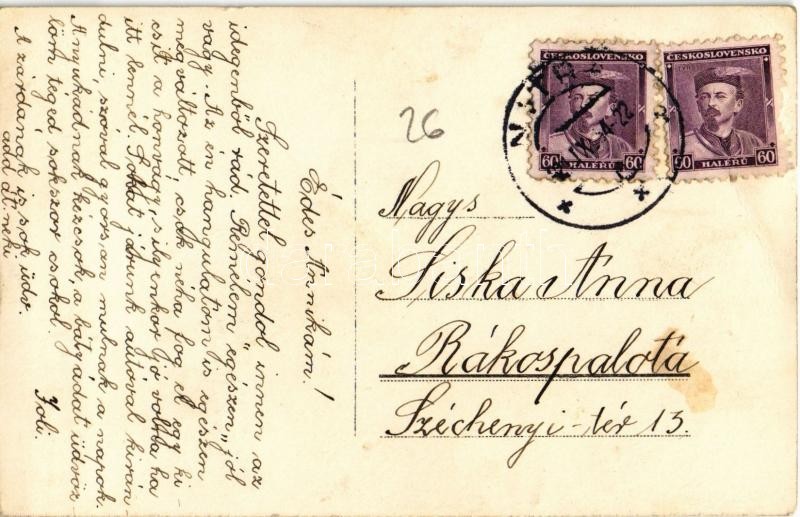 Édes Annikám!
Szeretettel gondol innen az
idegenből rád. Remélem "egészen" jól
vagy. Az én hangulatom is egészen
megváltozott, csak néha fog el egy ki-
csit a honvágy, s ilyenkor jó volna, ha
itt lennél. Sokat járunk autóval kirán-
dulni, szóval gyorsan mulnak a napok.
Anyukádnak kézcsók, a bátyádat üdvöz-
löm téged sokszor csókol. Joli.
A zárdának is sok üdv.
add át neki
26
ČESKOSLOVENSKO
60 HALÉRŮ 60
ČESKOSLOVENSKO
60 HALÉRŮ 60
NITRA
Nagys
Siska Anna
Rákospalota
Széchenyi-tér 13.